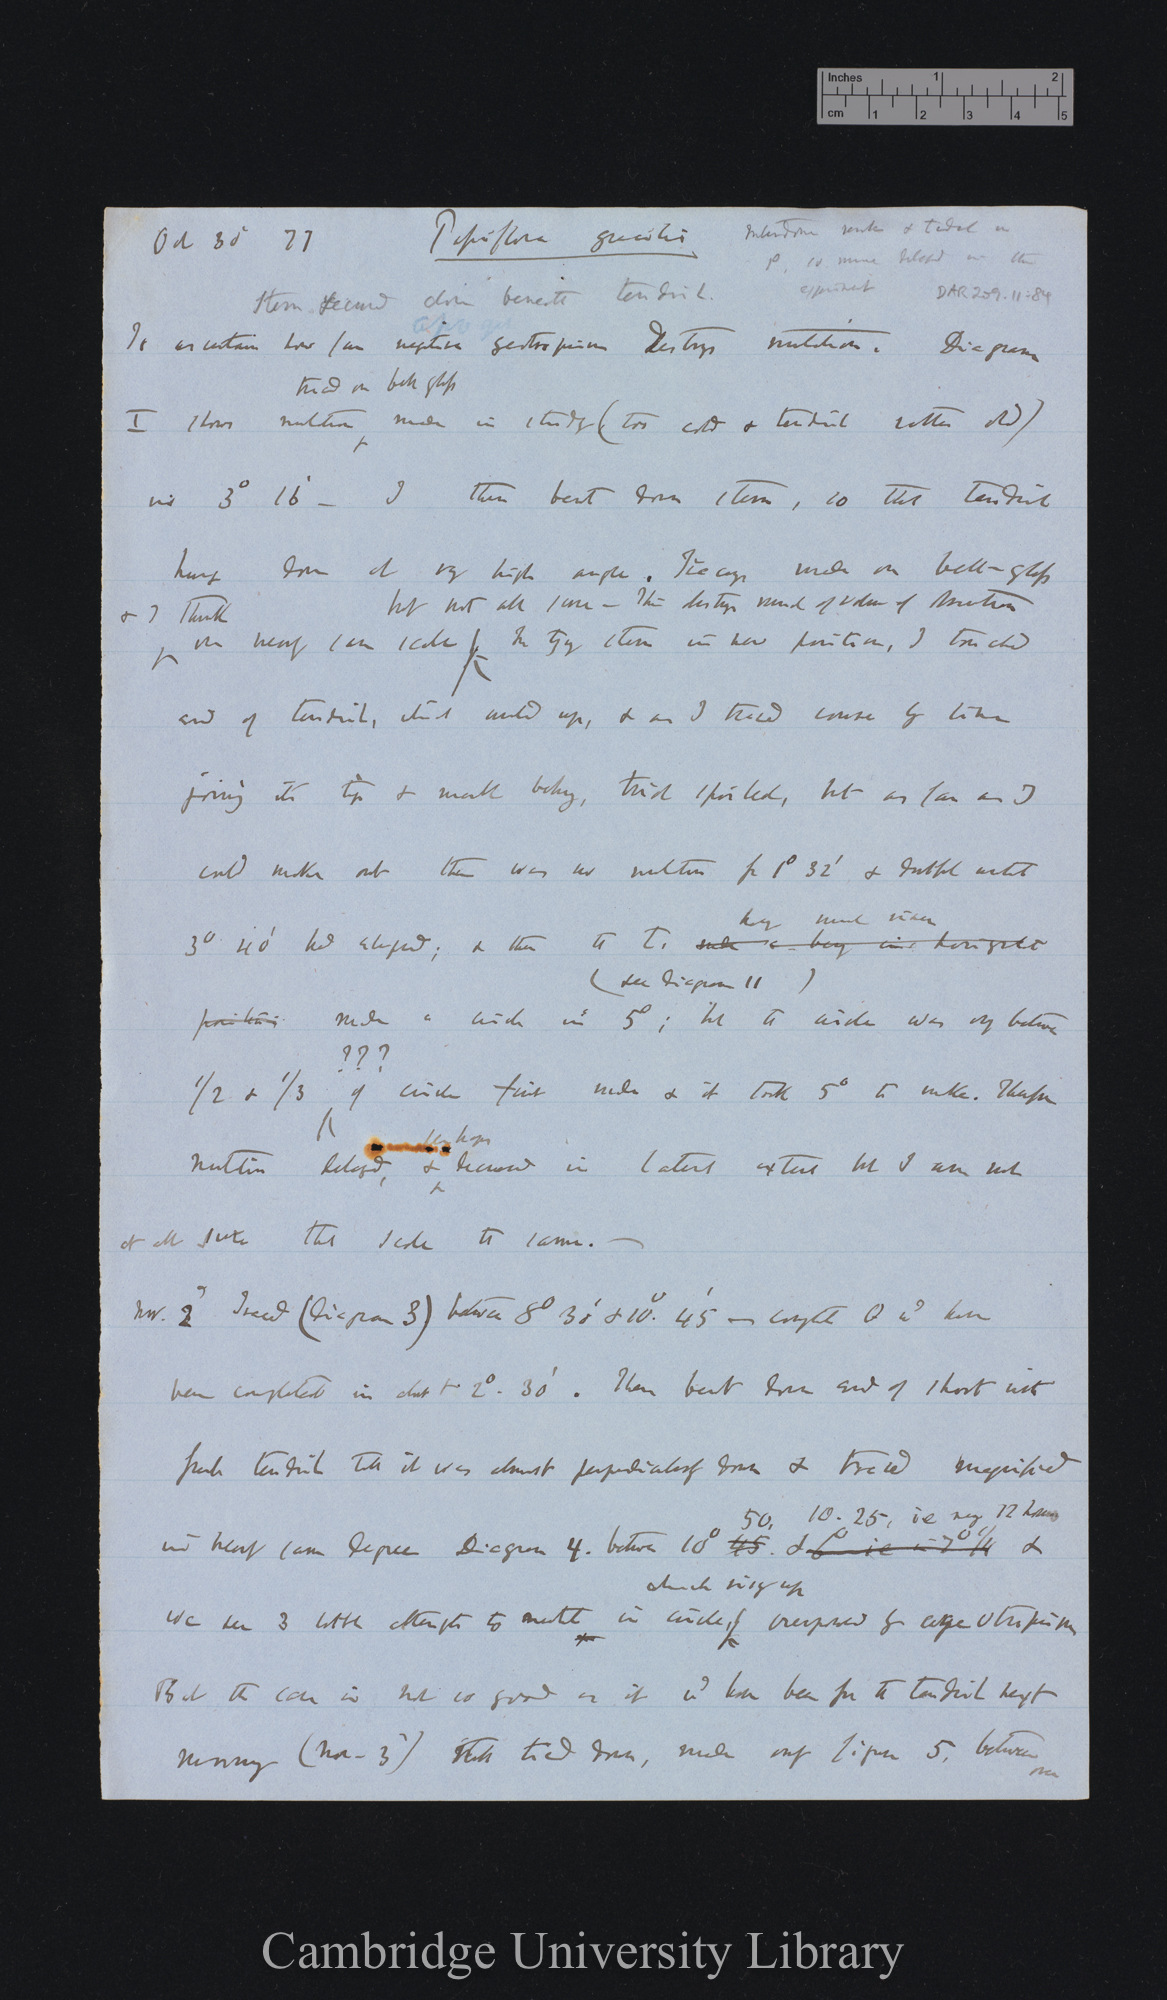 Inches 1 2
cm 1 2 3 4 5
Oct 30 77 Passiflora gracilis
DAR 209.11:84
Stem secured down beneath tendril.
apogeo
To ascertain how far negative geotropism Destroys nutation. Diagram
traced on bell glass
I shows nutation made in study (too cold & tendril rather old)
in 3° 16' — I then bent down stem, so that tendril
hung down at very high angle. Tracings made on bell-glass
& I think but not all sure — This destroys much of value of
on nearly same scale In tying stem in new position, I touched
end of tendril, which curled up, & as I traced course by lines
joining its tip & mark below, trial spoiled, but as far as I
could make out there was no nutation for 1° 32' & doubtful until
3° 40' had elapsed; & then it
(see Diagram 11)
position made a circle in 5°; but the circle was only between
???
1/2 & 1/3 of circle first made & it took 5° to make. Therefore
perhaps
Nutation delayed, & decreased in lateral extent but I am not
at all sure the scale the same. —
Nov. 2d Traced (Diagram 3) between 8° 30' & 10° 45' — complete O wd have
been completed in about 2° 30'. Then bent down end of shoot with
fresh tendril till it was almost perpendicularly down & traced magnified
50, 10.25, ie nearly 12 hours
in nearly same degree Diagram 4. between 10° 45 &
& which
we see 3 little attempts to nutate in circle, overpowered by apogeotropism
But the case is not so good as it wd have been for the tendril next
morning (Nov. 3d) still tied down, made only figure 5, between
over
Cambridge University Library